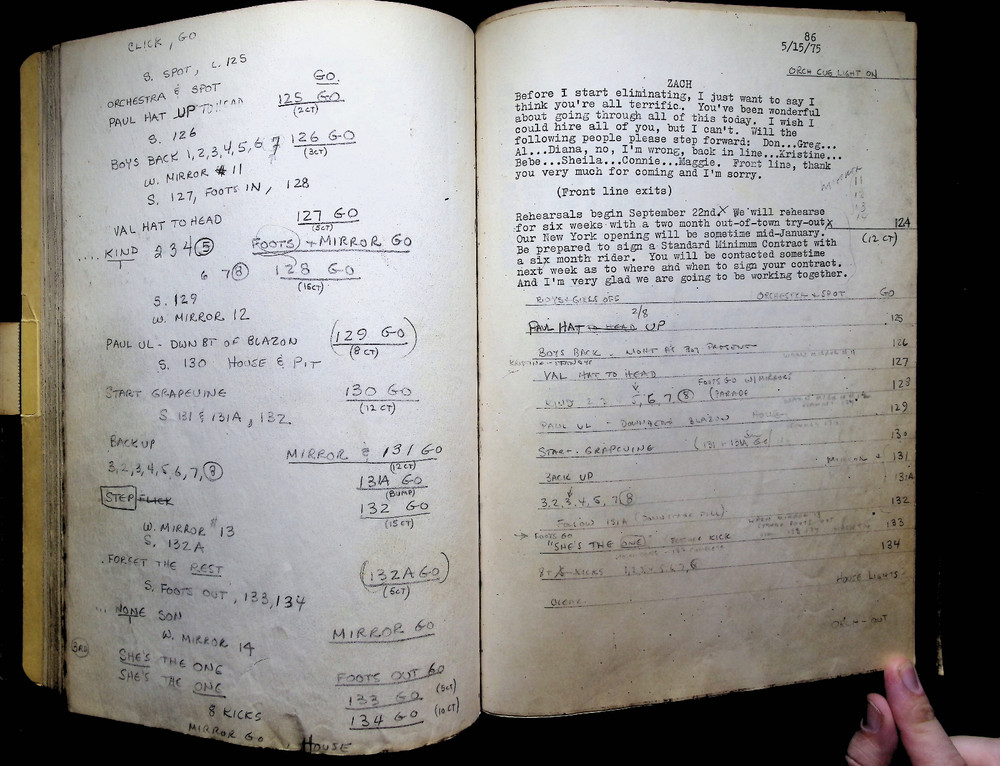 CLICK, GO
S. SPOT, L. 125
GO
ORCHESTRA & SPOT
125 GO
(2CT)
PAUL HAT UP TO HEAD
S. 126
BOYS BACK 1,2,3,4,5,6,7 126 GO
(3CT)
W. MIRROR #11
S. 127, FOOTS IN, 128
VAL HAT TO HEAD 127 GO
(5CT)
... KIND 2 3 4 5 FOOTS + MIRROR GO
6 7 8 128 GO
(15CT)
S. 129
W. MIRROR 12
PAUL UL - DWN BT OF BLAZON (129 GO)
(8CT)
S 130 HOUSE & PIT
START GRAPEVINE 130 GO
(12CT)
S 131 & 131A, 132
BACK UP MIRROR & 131 GO
(12CT)
3,2,3,4,5,6,7,8 131A GO
(BUMP)
STEP FLICK 132 GO
(15CT)
W. MIRROR #13
S. 132A
.FORGET THE REST (132A GO)
(5CT)
S. FOOTS OUT, 133, 134
... NONE SON
MIRROR GO
W. MIRROR 14
3RD
SHE'S THE ONE FOOTS OUT GO
SHE'S THE ONE 133 GO (5CT)
8 KICKS 134 GO (10CT)
MIRROR GO, HOUSE
86
5/15/75
ORCH CUE LIGHT ON
ZACH
Before I start eliminating, I just want to say I
think you're all terrific. You've been wonderful
about going through all of this today. I wish I
could hire all of you, but I can't. Will the
following people please step forward: Don...Greg...
Al...Diana, no, I'm wrong, back in line...Kristine...
Bebe...Sheila...Connie...Maggie. Front line, thank
you very much for coming and I'm sorry.
MIRROR
11
12
13
(Front line exits)
Rehearsals begin September 22nd. We will rehearse
for six weeks with a two month out-of-town try-out. 124
Our New York opening will be sometime mid-January. (12 CT)
Be prepared to sign a Standard Minimum Contract with
a six month rider. You will be contacted sometime
next week as to where and when to sign your contract.
And I'm very glad we are going to be working together.
BOYS & GIRLS OFF ORCHESTRA & SPOT GO
2/8
PAUL HAT TO HEAD UP 125
BOYS BACK - 126
VAL HAT TO HEAD 127
FOOTS GO W/ MIRRORS
KIND 2 3 4 5, 6, 7, 8 128
PAUL UL - DOWNBEAT BLAZON HOUSE 129
START GRAPEVINE (131 - 131A GO) 130
MIRROR + 131
BACK UP 131A
3,2,3,4,5,7,8 132
FOLLOW 131A
FOOTS GO
133
"SHE'S THE ONE" KICK
134
8 KICKS
HOUSE LIGHTS
ORCH - OUT